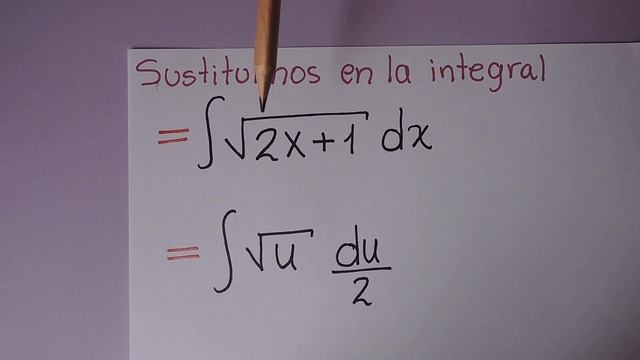 Sustituimos en la integral
= ∫√(2x+1) dx
= ∫√u du/2